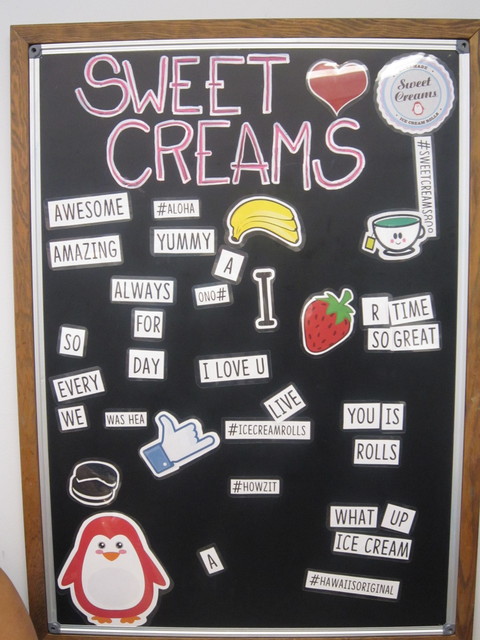 SWEET
CREAMS
Sweet
Creams
ICE CREAM ROLLS
#SWEETCREAMS808
AWESOME
#ALOHA
AMAZING
YUMMY
A
ALWAYS
ONO#
I
FOR
R TIME
SO GREAT
SO
DAY
I LOVE U
EVERY
WE
WAS HEA
LIVE
#ICECREAMROLLS
YOU IS
ROLLS
#HOWZIT
WHAT UP
ICE CREAM
A
#HAWAIISORIGINAL